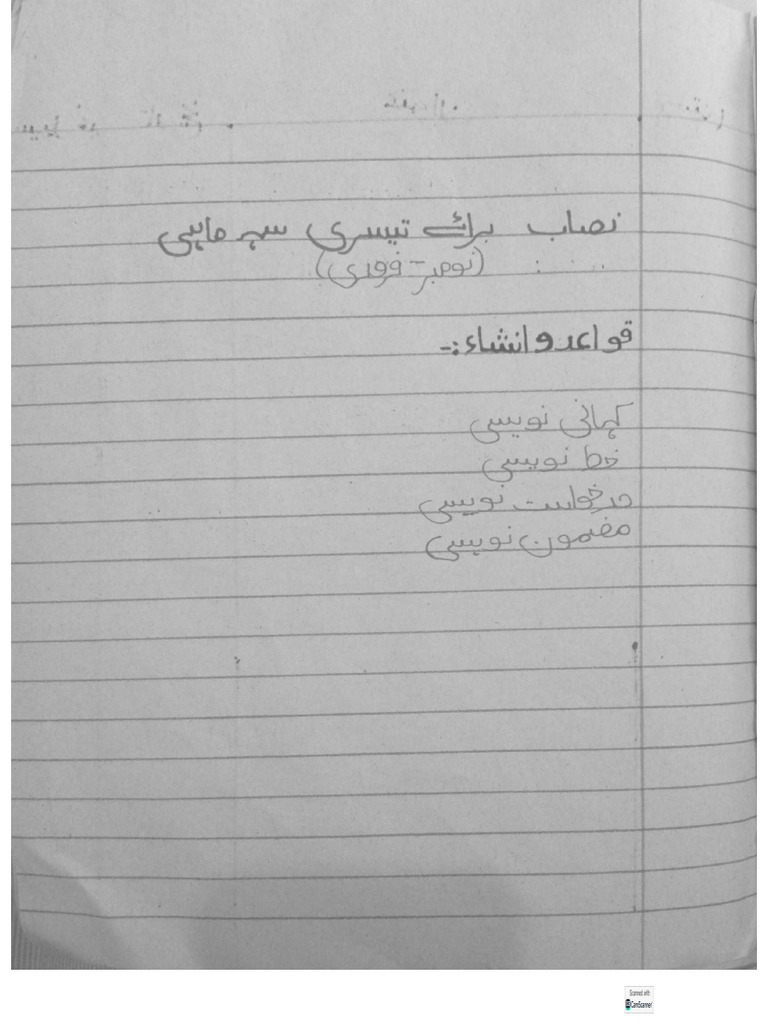 نصاب برائے تیسری سہہ ماہی
(نومبر - فروری)
قواعد و انشاء :-
کہانی نویسی
خط نویسی
درخواست نویسی
مضمون نویسی
Scanned with
CamScanner